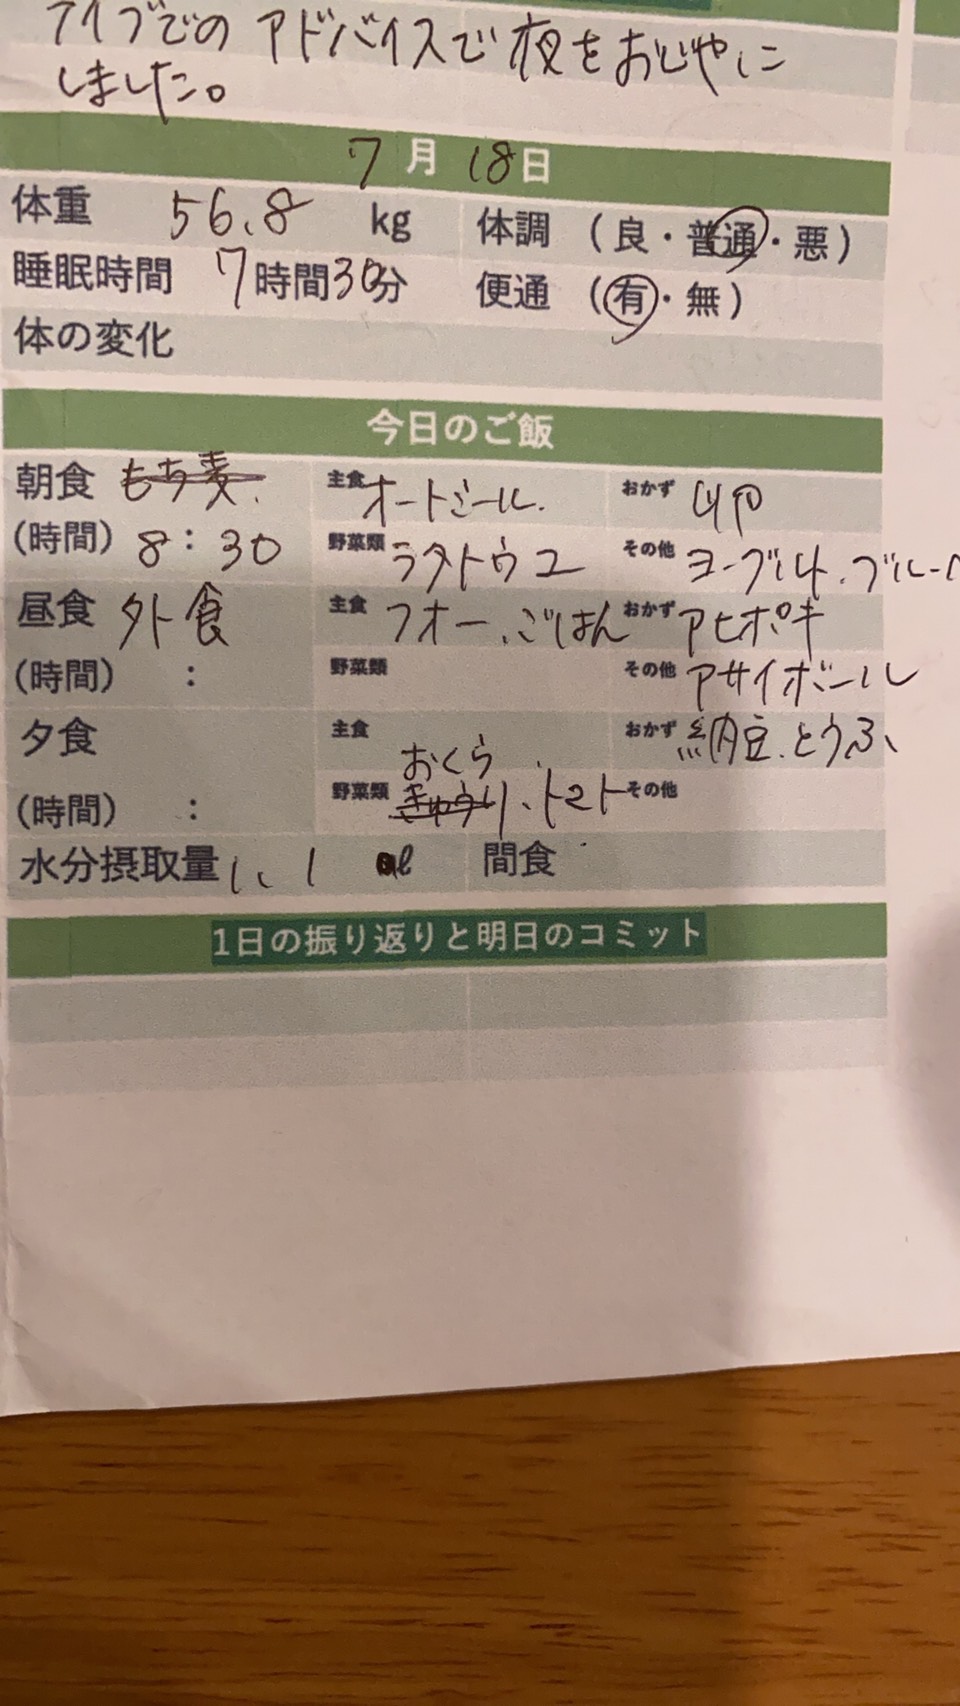 ライブでのアドバイスで夜をおじやに
しました。
7月18日
体重 56.8 kg 体調 (良・普通・悪)
睡眠時間 7時間30分 便通 (有・無)
体の変化
今日のご飯
朝食 もち麦. 主食 オートミール. おかず 卵
(時間) 8:30 野菜類 ラタトウユ その他 ヨーグルト.ブルー
昼食 外食 主食 フオー.ごはん おかず アヒポキ
(時間) : 野菜類 その他 アサイボール
夕食 主食 おかず 納豆.とうふ
おくら
(時間) : 野菜類 きゅうり、トマト その他
水分摂取量 1、1 l 間食
1日の振り返りと明日のコミット